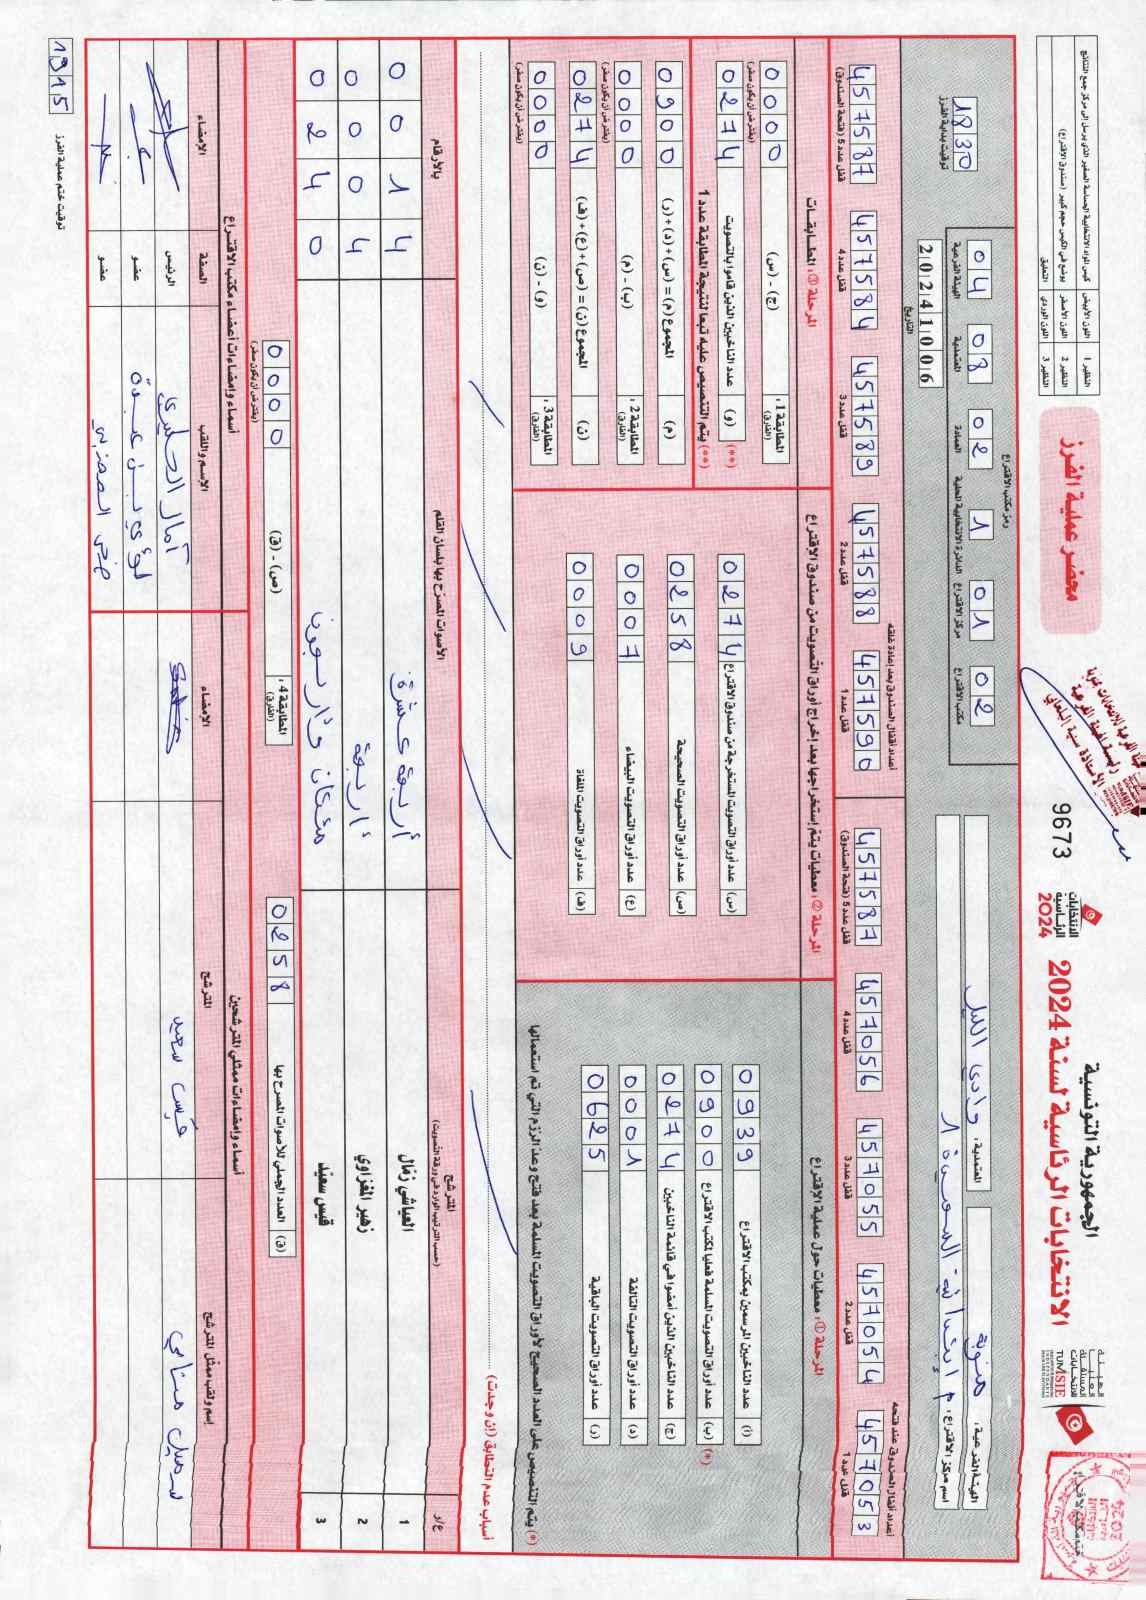 الجمهورية التونسية
الانتخابات الرئاسية لسنة 2024
الانتخابات الرئاسية 2024
9673
محضر عملية الفرز
النظير 1 اللون الأبيض
النظير 2 اللون الأصفر
النظير 3 اللون الوردي
الهيئة الفرعية: منوبة المعتمدية: وادي الليل
اسم مركز الاقتراع:
رمز مكتب الاقتراع
مكتب الاقتراع 02
مركز الاقتراع 01
الدائرة الانتخابية المحلية 1
العمادة 02
المعتمدية 08
الهيئة الفرعية 04
التاريخ 20241006
توقيت بداية الفرز 1830
أعداد أقفال الصندوق عند فتحه
قفل عدد 1 457053
قفل عدد 2 457054
قفل عدد 3 457055
قفل عدد 4 457056
قفل عدد 5 (فتحة الصندوق) 457587
أعداد أقفال الصندوق بعد إعادة غلقه
قفل عدد 1 457590
قفل عدد 2 457588
قفل عدد 3 457589
قفل عدد 4 457584
قفل عدد 5 (فتحة الصندوق) 457587
المرحلة ①: معطيات حول عملية الاقتراع
(أ) عدد الناخبين المرسمين بمكتب الاقتراع 0939
(ب) عدد أوراق التصويت المسلمة فعليا لمكتب الاقتراع 0900 (*)
(ج) عدد الناخبين الذين أمضوا في قائمة الناخبين 0274
(د) عدد أوراق التصويت التالفة 0001
(ر) عدد أوراق التصويت الباقية 0625
(*) يتم التنصيص على العدد الصحيح لأوراق التصويت المسلمة بعد فتح وعد الرزم التي تم استعمالها
المرحلة ②: معطيات يتم إستخراجها بعد إخراج أوراق التصويت من صندوق الاقتراع
(س) عدد أوراق التصويت المستخرجة من صندوق الاقتراع 0274
(ص) عدد أوراق التصويت الصحيحة 0258
(ع) عدد أوراق التصويت البيضاء 0007
(ف) عدد أوراق التصويت الملغاة 0009
المرحلة ③: المطابقات
المطابقة 1: (الفارق) (ج) - (س) 0000 (يفترض أن يكون صفر)
(**) (و) عدد الناخبين الذين قاموا بالتصويت 0274
(**) يتم التنصيص عليه تبعا لنتيجة المطابقة عدد 1
(م) المجموع (م) = (س)+(د)+(ر) 0900
المطابقة 2: (الفارق) (ب) - (م) 0000 (يفترض أن يكون صفر)
(ن) المجموع (ن) = (ص)+(ع)+(ف) 0274
المطابقة 3: (الفارق) (و) - (ن) 0000 (يفترض أن يكون صفر)
أسباب عدم التطابق (إن وجدت)
ع/ر المترشح (حسب الترتيب الوارد في ورقة التصويت) الأصوات المصرح بها بلسان القلم بالأرقام
1 العياشي زمال أربعة عشرة 0014
2 زهير المغزاوي أربعة 0004
3 قيس سعيد مئتان وأربعون 0240
(ق) العدد الجملي للأصوات المصرح بها 0258
المطابقة 4: (الفارق) (ص) - (ق) 0000 (يفترض أن يكون صفر)
أسماء وإمضاءات ممثلي المترشحين
إسم ولقب ممثل المترشح المترشح الإمضاء
قيس سعيد
أسماء وإمضاءات أعضاء مكتب الاقتراع
الإسم واللقب الصفة الإمضاء
الرئيس
لؤي بن عبدة عضو
عضو
توقيت ختم عملية الفرز 1915